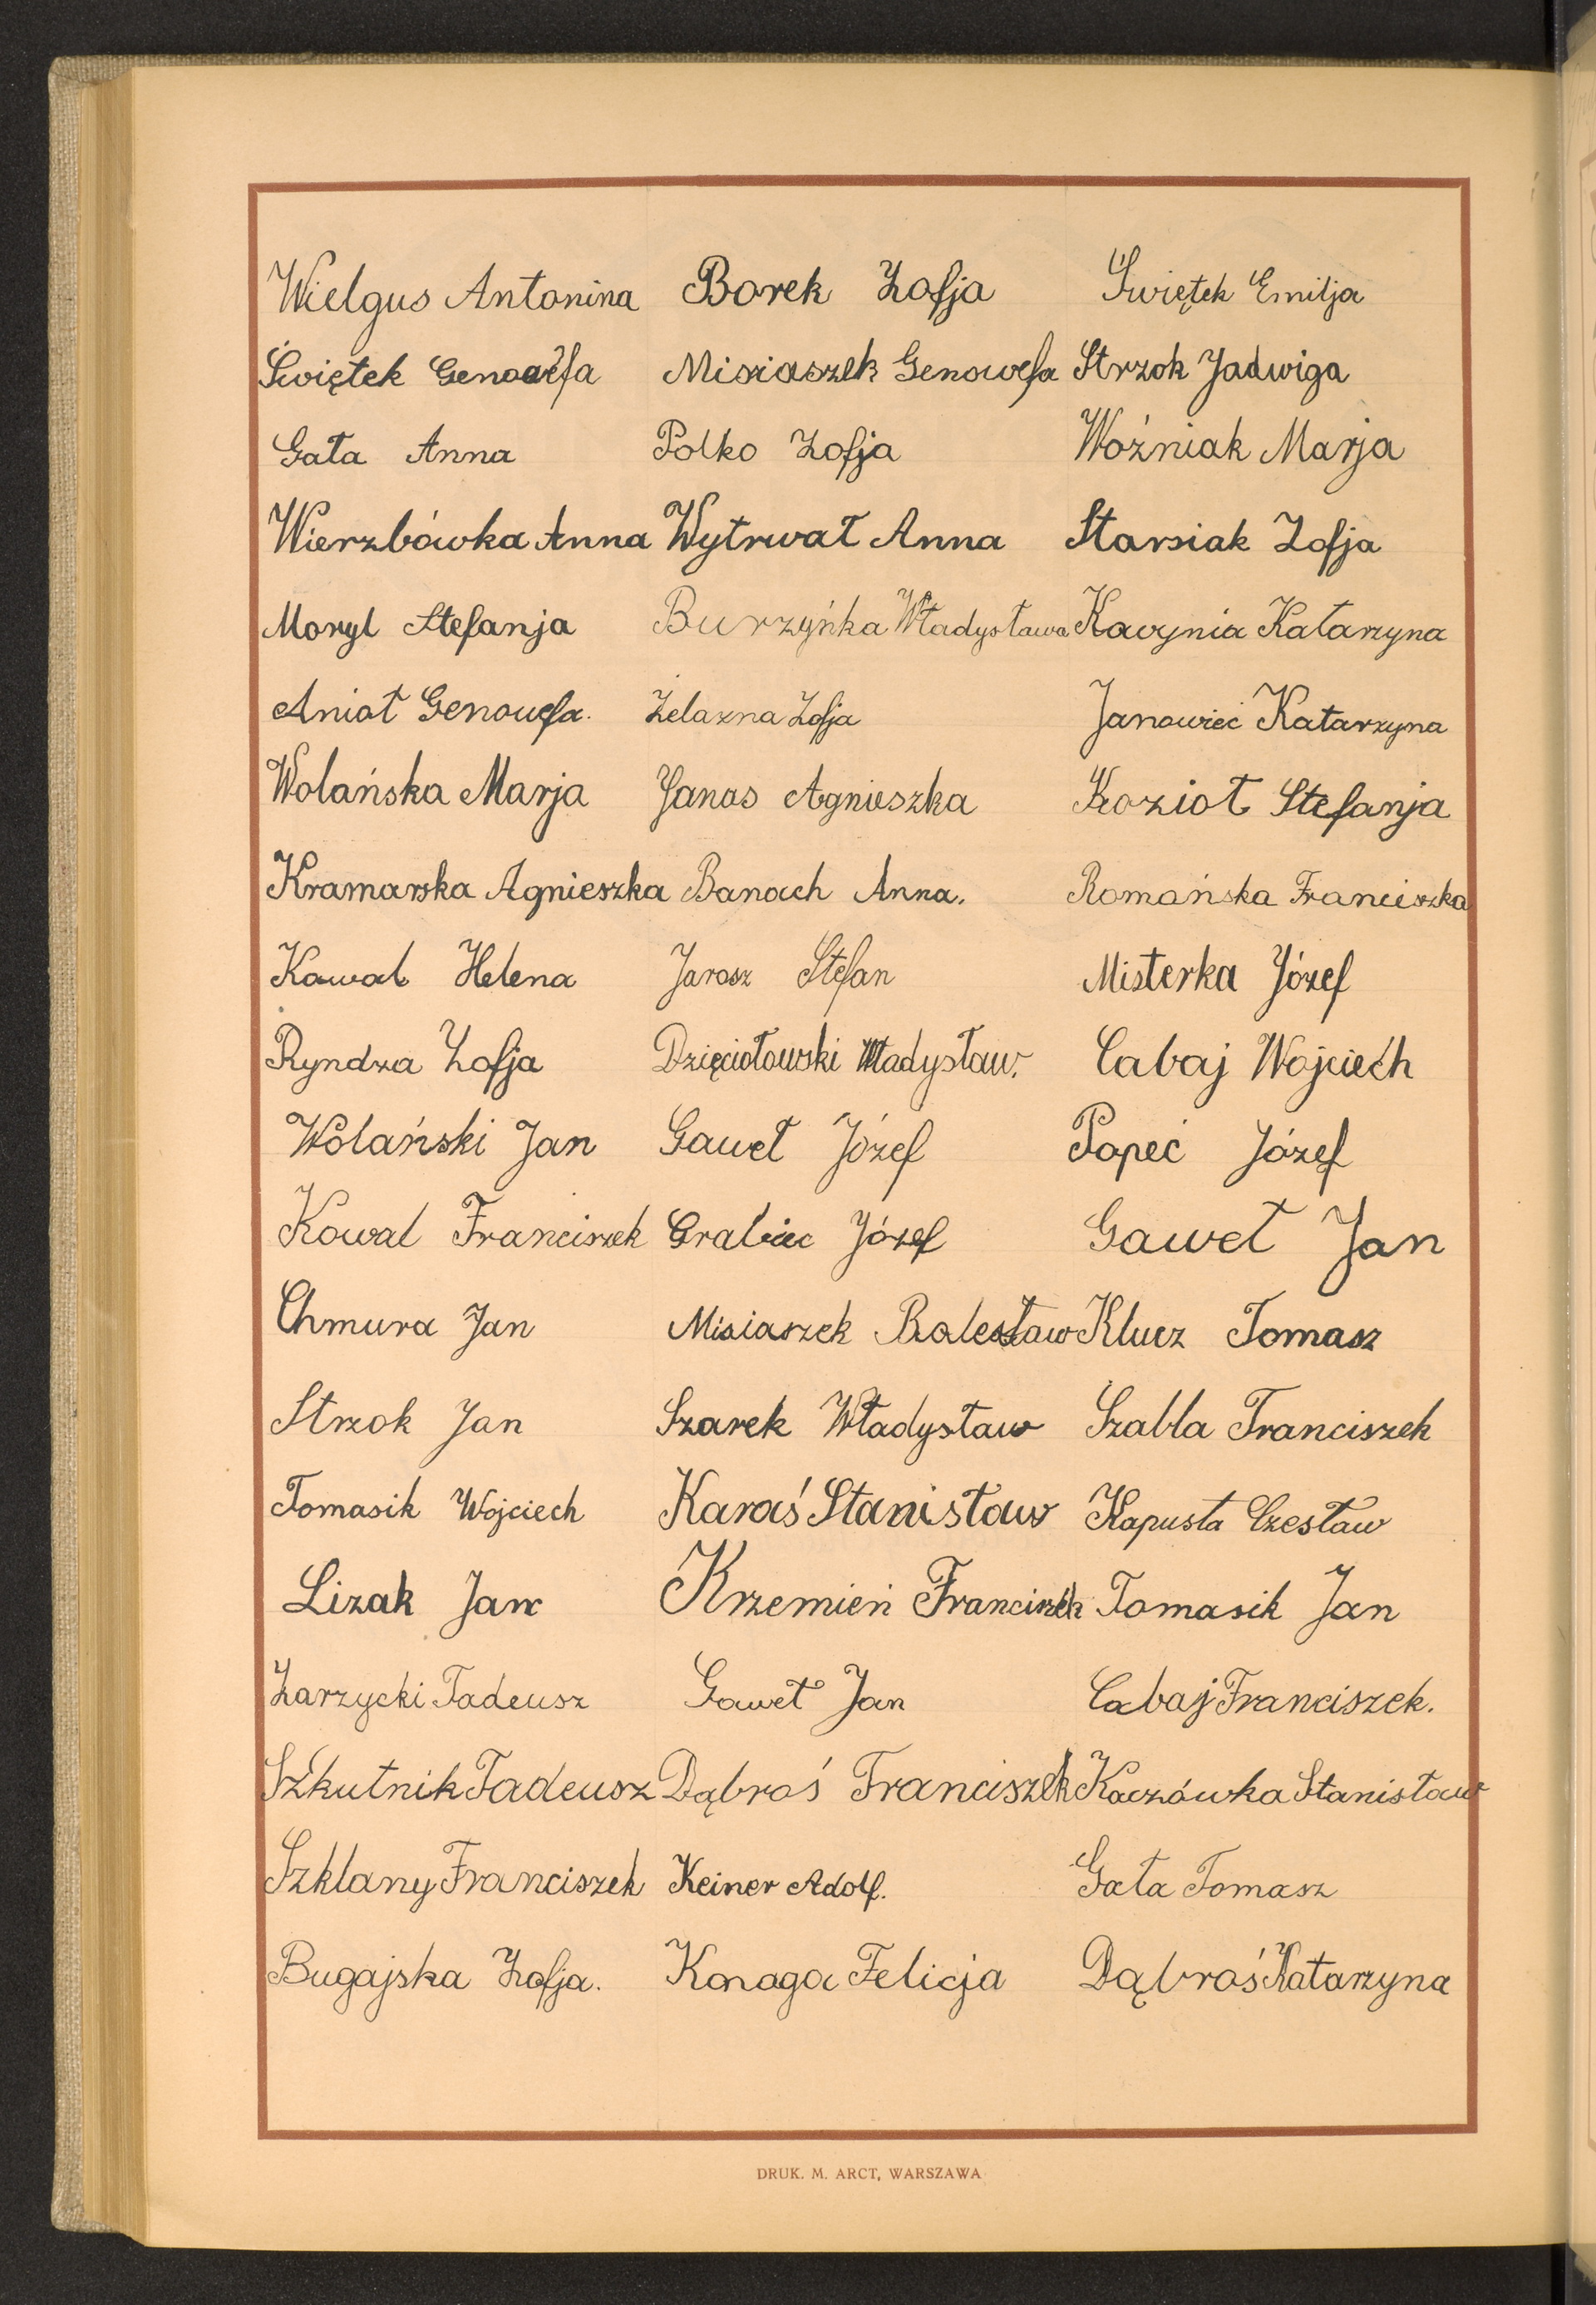 Wielgus Antonina Borek Zofja Świętek Emilja
Świętek Genowefa Misiaszek Genowefa Strzok Jadwiga
Gała Anna Polko Zofja Woźniak Marja
Wierzbówka Anna Wytrwał Anna Starsiak Zofja
Moryl Stefanja Burzyńka Władysława Kavynia Katarzyna
Anioł Genowefa. Żelazna Zofja Janowiec Katarzyna
Wolańska Marja Janas Agnieszka Kozioł Stefanja
Kramarska Agnieszka Banach Anna. Romańska Franciszka
Kowal Helena Jarosz Stefan Misterka Józef
Ryndza Zofja Dzięciołowski Władysław. Cabaj Wojciech
Wolański Jan Gaweł Józef Popeć Józef
Kowal Franciszek Grabiec Józef Gaweł Jan
Chmura Jan Misiaszek Bolesław Klucz Tomasz
Strzok Jan Szarek Władysław Szabla Franciszek
Tomasik Wojciech Karaś Stanisław Kapusta Czesław
Lizak Jan Krzemień Franciszek Tomasik Jan
Zarzycki Tadeusz Gaweł Jan Cabaj Franciszek.
Szkutnik Tadeusz Dąbroś Franciszek Kaczówka Stanisław
Szklany Franciszek Keiner Adolf. Gała Tomasz
Bugajska Zofja. Konaga Felicja Dąbroś Katarzyna
DRUK. M. ARCT, WARSZAWA